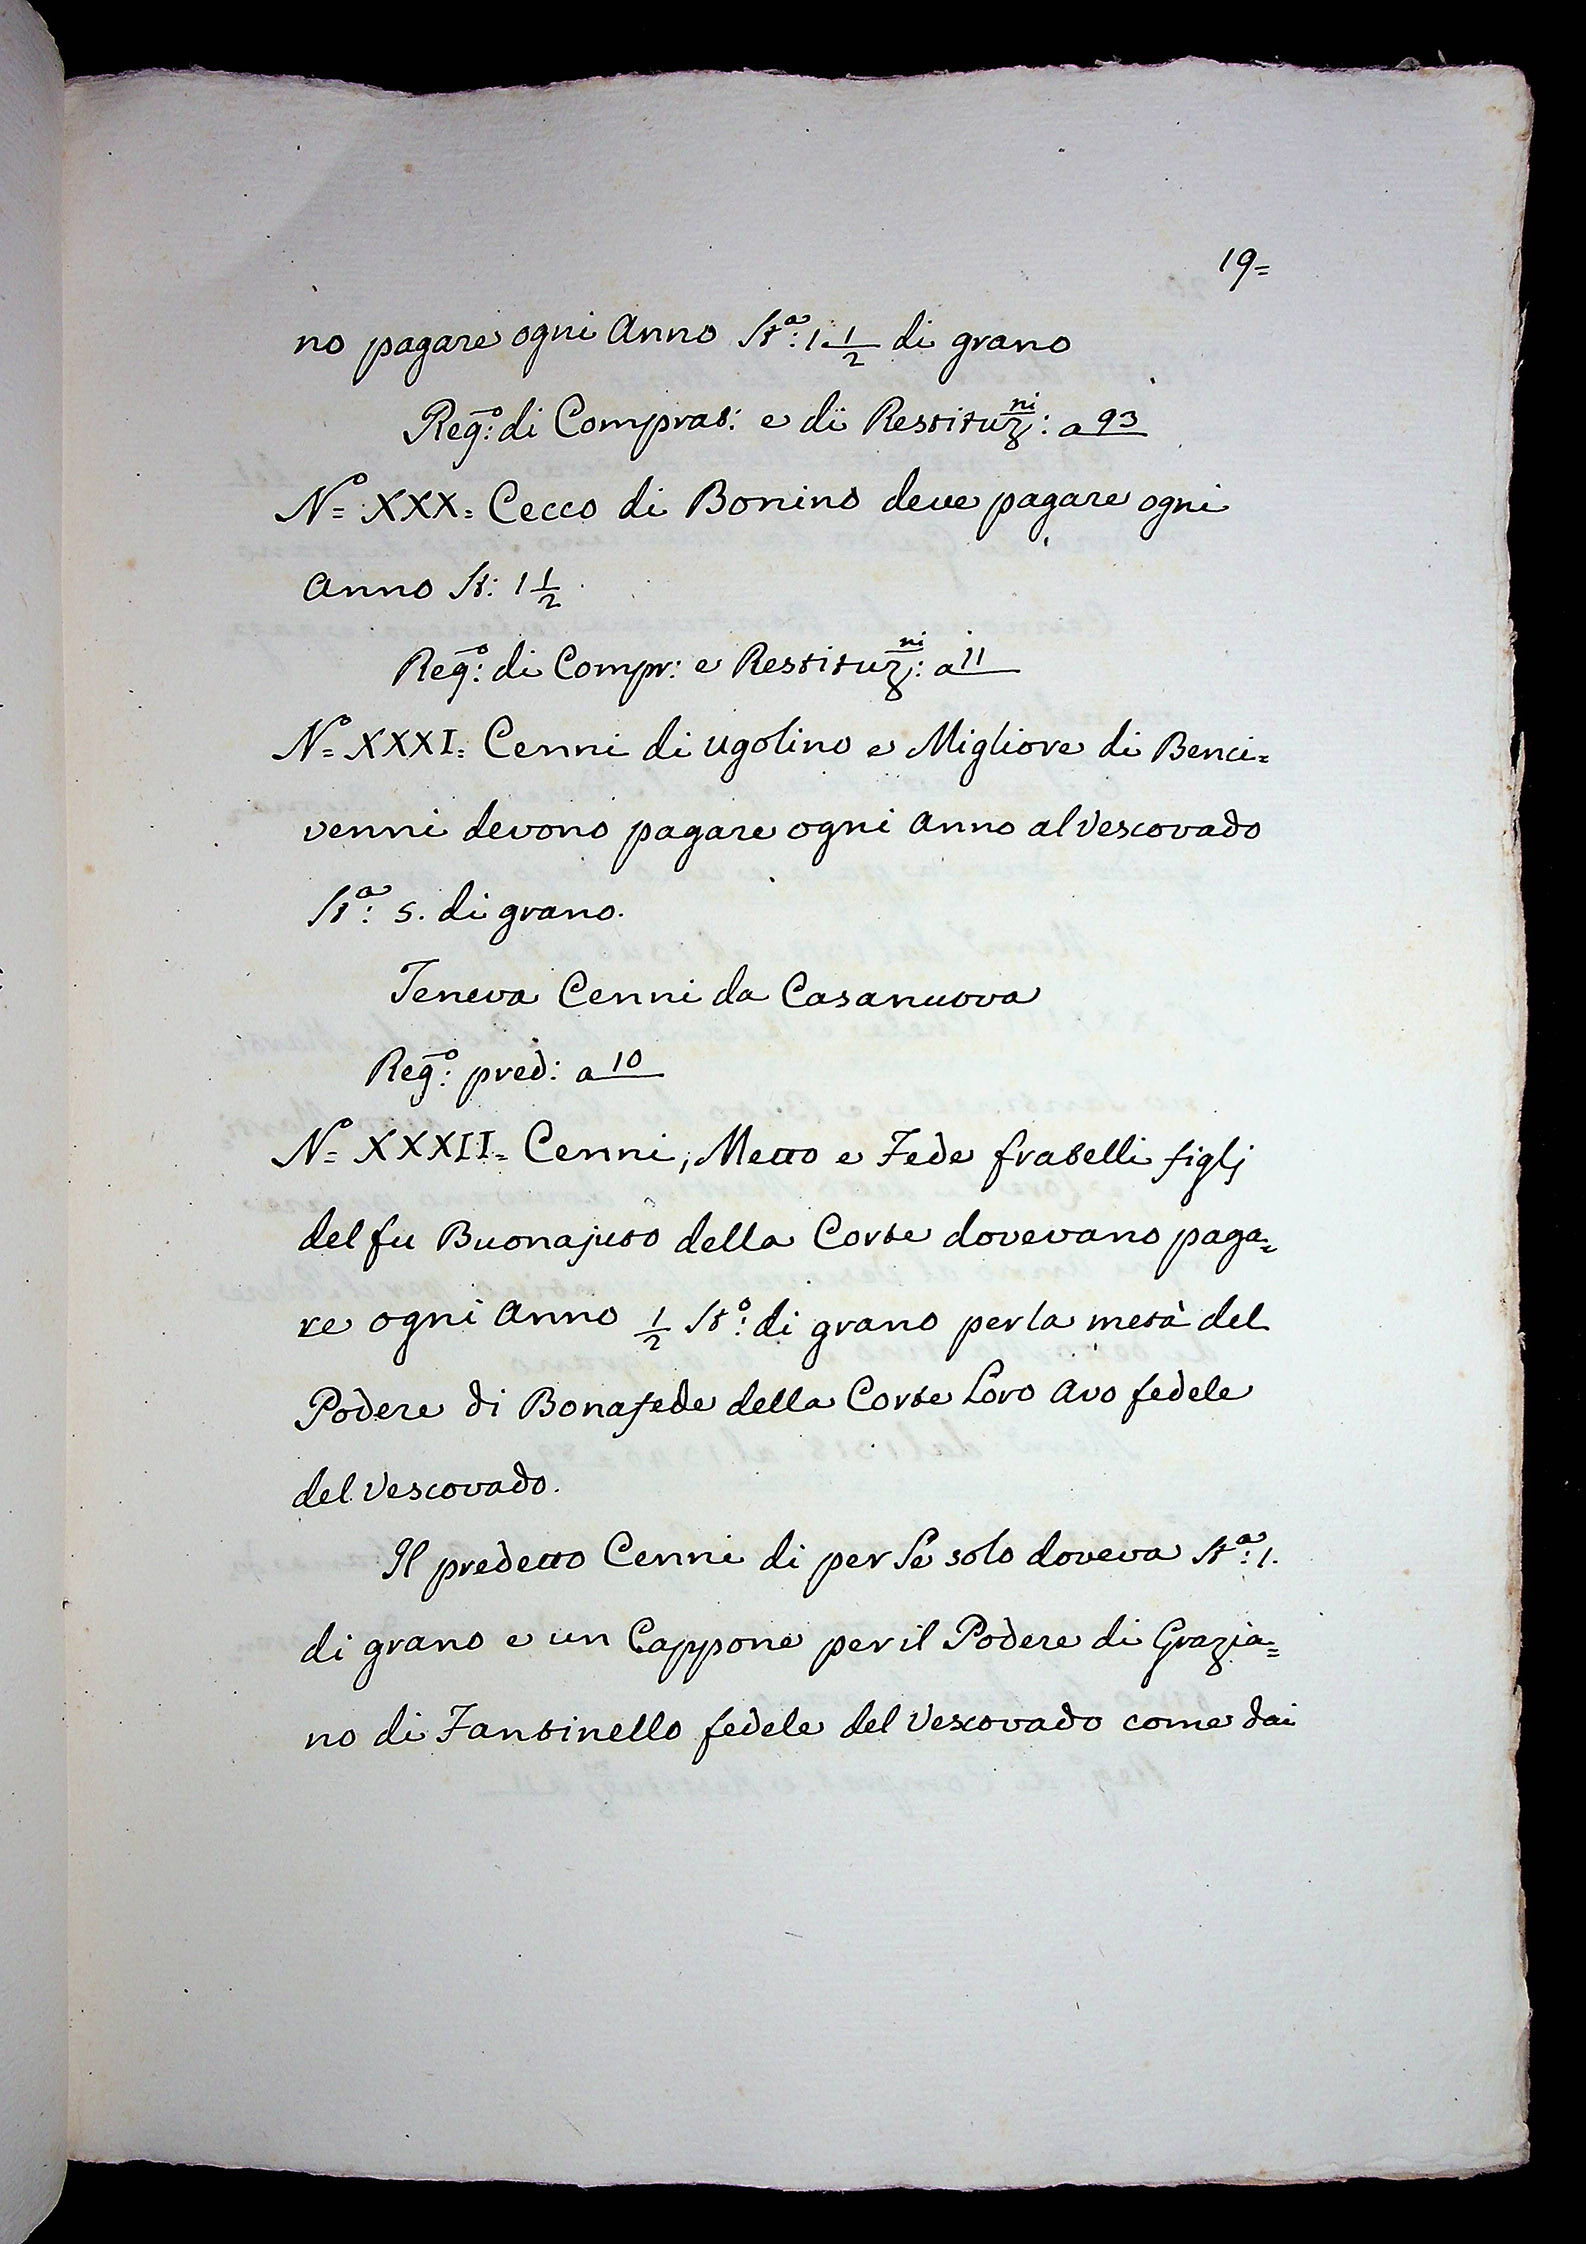 19=
no pagare ogni Anno St.ª: 1 1/2 di grano
Reg.º: di Comprat: e di Restituz.ni: a 93
N.º= XXX= Cecco di Bonino deve pagare ogni
Anno St: 1 1/2
Reg.º: di Compr: e Restituz.ni: a 11
N.º= XXXI= Cenni di Ugolino e Migliore di Benci=
venni devono pagare ogni Anno al Vescovado
St.ª: 5. di grano.
Teneva Cenni da Casanuova
Reg.º: pred: a 10
N.º= XXXII= Cenni, Metto e Fede fratelli figlj
del fu Buonajuto della Corte dovevano paga=
re ogni Anno 1/2 St.º: di grano per la metà del
Podere di Bonafede della Corte Loro Avo fedele
del Vescovado.
Il predetto Cenni di per Se solo doveva St.ª: 1.
di grano e un Cappone per il Podere di Grazia=
no di Fantinello fedele del Vescovado come dai